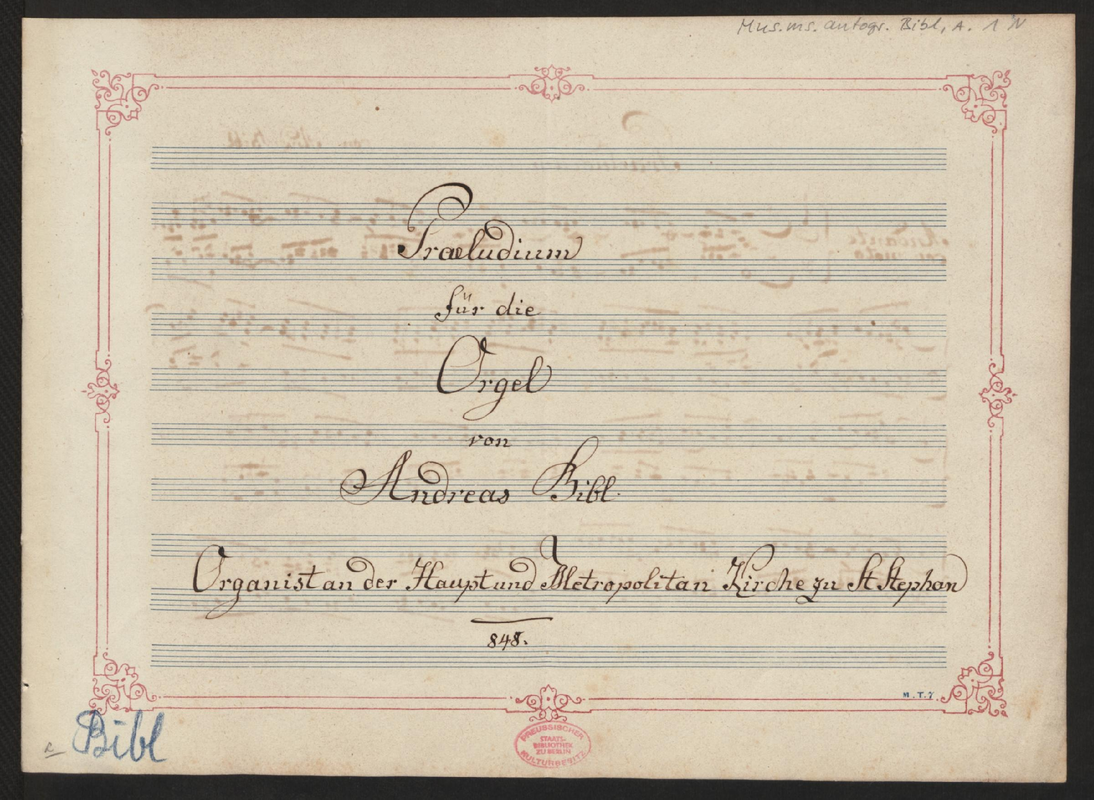 Mus.ms. autogr. Bibl, A. 1 N
Praeludium
für die
Orgel
von
Andreas Bibl.
Organist an der Haupt und Metropolitan Kirche zu St Stephan
848.
M.T.7.
Bibl
PREUSSISCHER
STAATS-
BIBLIOTHEK
ZU BERLIN
KULTURBESITZ